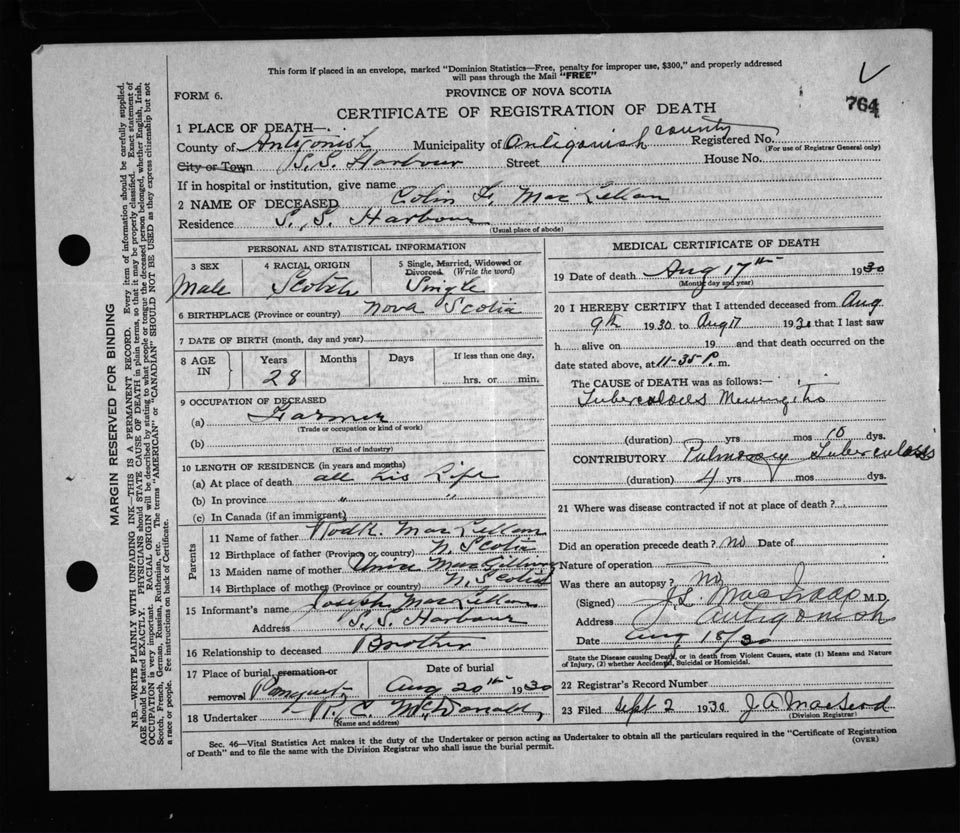 This form if placed in an envelope, marked "Dominion Statistics—Free, penalty for improper use, $300," and properly addressed
will pass through the Mail "FREE"
FORM 6.
PROVINCE OF NOVA SCOTIA
764
CERTIFICATE OF REGISTRATION OF DEATH
1 PLACE OF DEATH—
County of Antigonish Municipality of Antigonish County Registered No.
(For use of Registrar General only)
City or Town S.S. Harbour Street House No.
If in hospital or institution, give name
2 NAME OF DECEASED Colin F. MacLellan
Residence S.S. Harbour
(Usual place of abode)
PERSONAL AND STATISTICAL INFORMATION
3 SEX 4 RACIAL ORIGIN 5 Single, Married, Widowed or
Divorced. (Write the word)
Male Scotch Single
6 BIRTHPLACE (Province or country) Nova Scotia
7 DATE OF BIRTH (month, day and year)
8 AGE IN Years Months Days If less than one day,
28 hrs. or min.
9 OCCUPATION OF DECEASED
(a) Farmer
(Trade or occupation or kind of work)
(b)
(Kind of industry)
10 LENGTH OF RESIDENCE (in years and months)
(a) At place of death all his Life
(b) In province " "
(c) In Canada (if an immigrant)
Parents
11 Name of father Rodk. MacLellan
12 Birthplace of father (Province or country) N. Scotia
13 Maiden name of mother
14 Birthplace of mother (Province or country) N. Scotia
15 Informant's name Joseph MacLellan
Address S.S. Harbour
16 Relationship to deceased Brother
17 Place of burial, cremation or Date of burial
removal Pomquet Aug 20th 1930
18 Undertaker R.C. McDonald,
(Name and address)
MEDICAL CERTIFICATE OF DEATH
19 Date of death Aug 17th 1930
(Month, day and year)
20 I HEREBY CERTIFY that I attended deceased from Aug
9th 1930 to Aug 17 1930 that I last saw
h alive on 19 and that death occurred on the
date stated above, at 11-35 P. m.
The CAUSE of DEATH was as follows:—
Tuberculosis Meningitis
(duration) yrs mos 10 dys.
CONTRIBUTORY Pulmonary Tuberculosis
(duration) 4 yrs mos dys.
21 Where was disease contracted if not at place of death?
Did an operation precede death? No Date of
Nature of operation
Was there an autopsy? No
(Signed) J.L. MacIsaac M.D.
Address Antigonish
Date Aug 18/30
State the Disease causing Death, or in death from Violent Causes, state (1) Means and Nature
of Injury, (2) whether Accidental, Suicidal or Homicidal.
22 Registrar's Record Number
23 Filed Sept 2 1930 J A MacLeod
(Division Registrar)
Sec. 46—Vital Statistics Act makes it the duty of the Undertaker or person acting as Undertaker to obtain all the particulars required in the "Certificate of Registration
of Death" and to file the same with the Division Registrar who shall issue the burial permit.
(OVER)
MARGIN RESERVED FOR BINDING
N.B.—WRITE PLAINLY WITH UNFADING INK—THIS IS A PERMANENT RECORD. Every item of information should be carefully supplied.
AGE should be stated EXACTLY. PHYSICIANS should STATE CAUSE OF DEATH in plain terms, so that it may be properly classified. Exact statement of
OCCUPATION is very important. RACIAL ORIGIN will be described by stating to what people or tongue the deceased person belonged, whether English, Irish,
Scotch, French, German, Russian, Ruthenian, etc. The terms "AMERICAN" or "CANADIAN" SHOULD NOT BE USED as they express citizenship but not
a race or people. See instructions on back of Certificate.